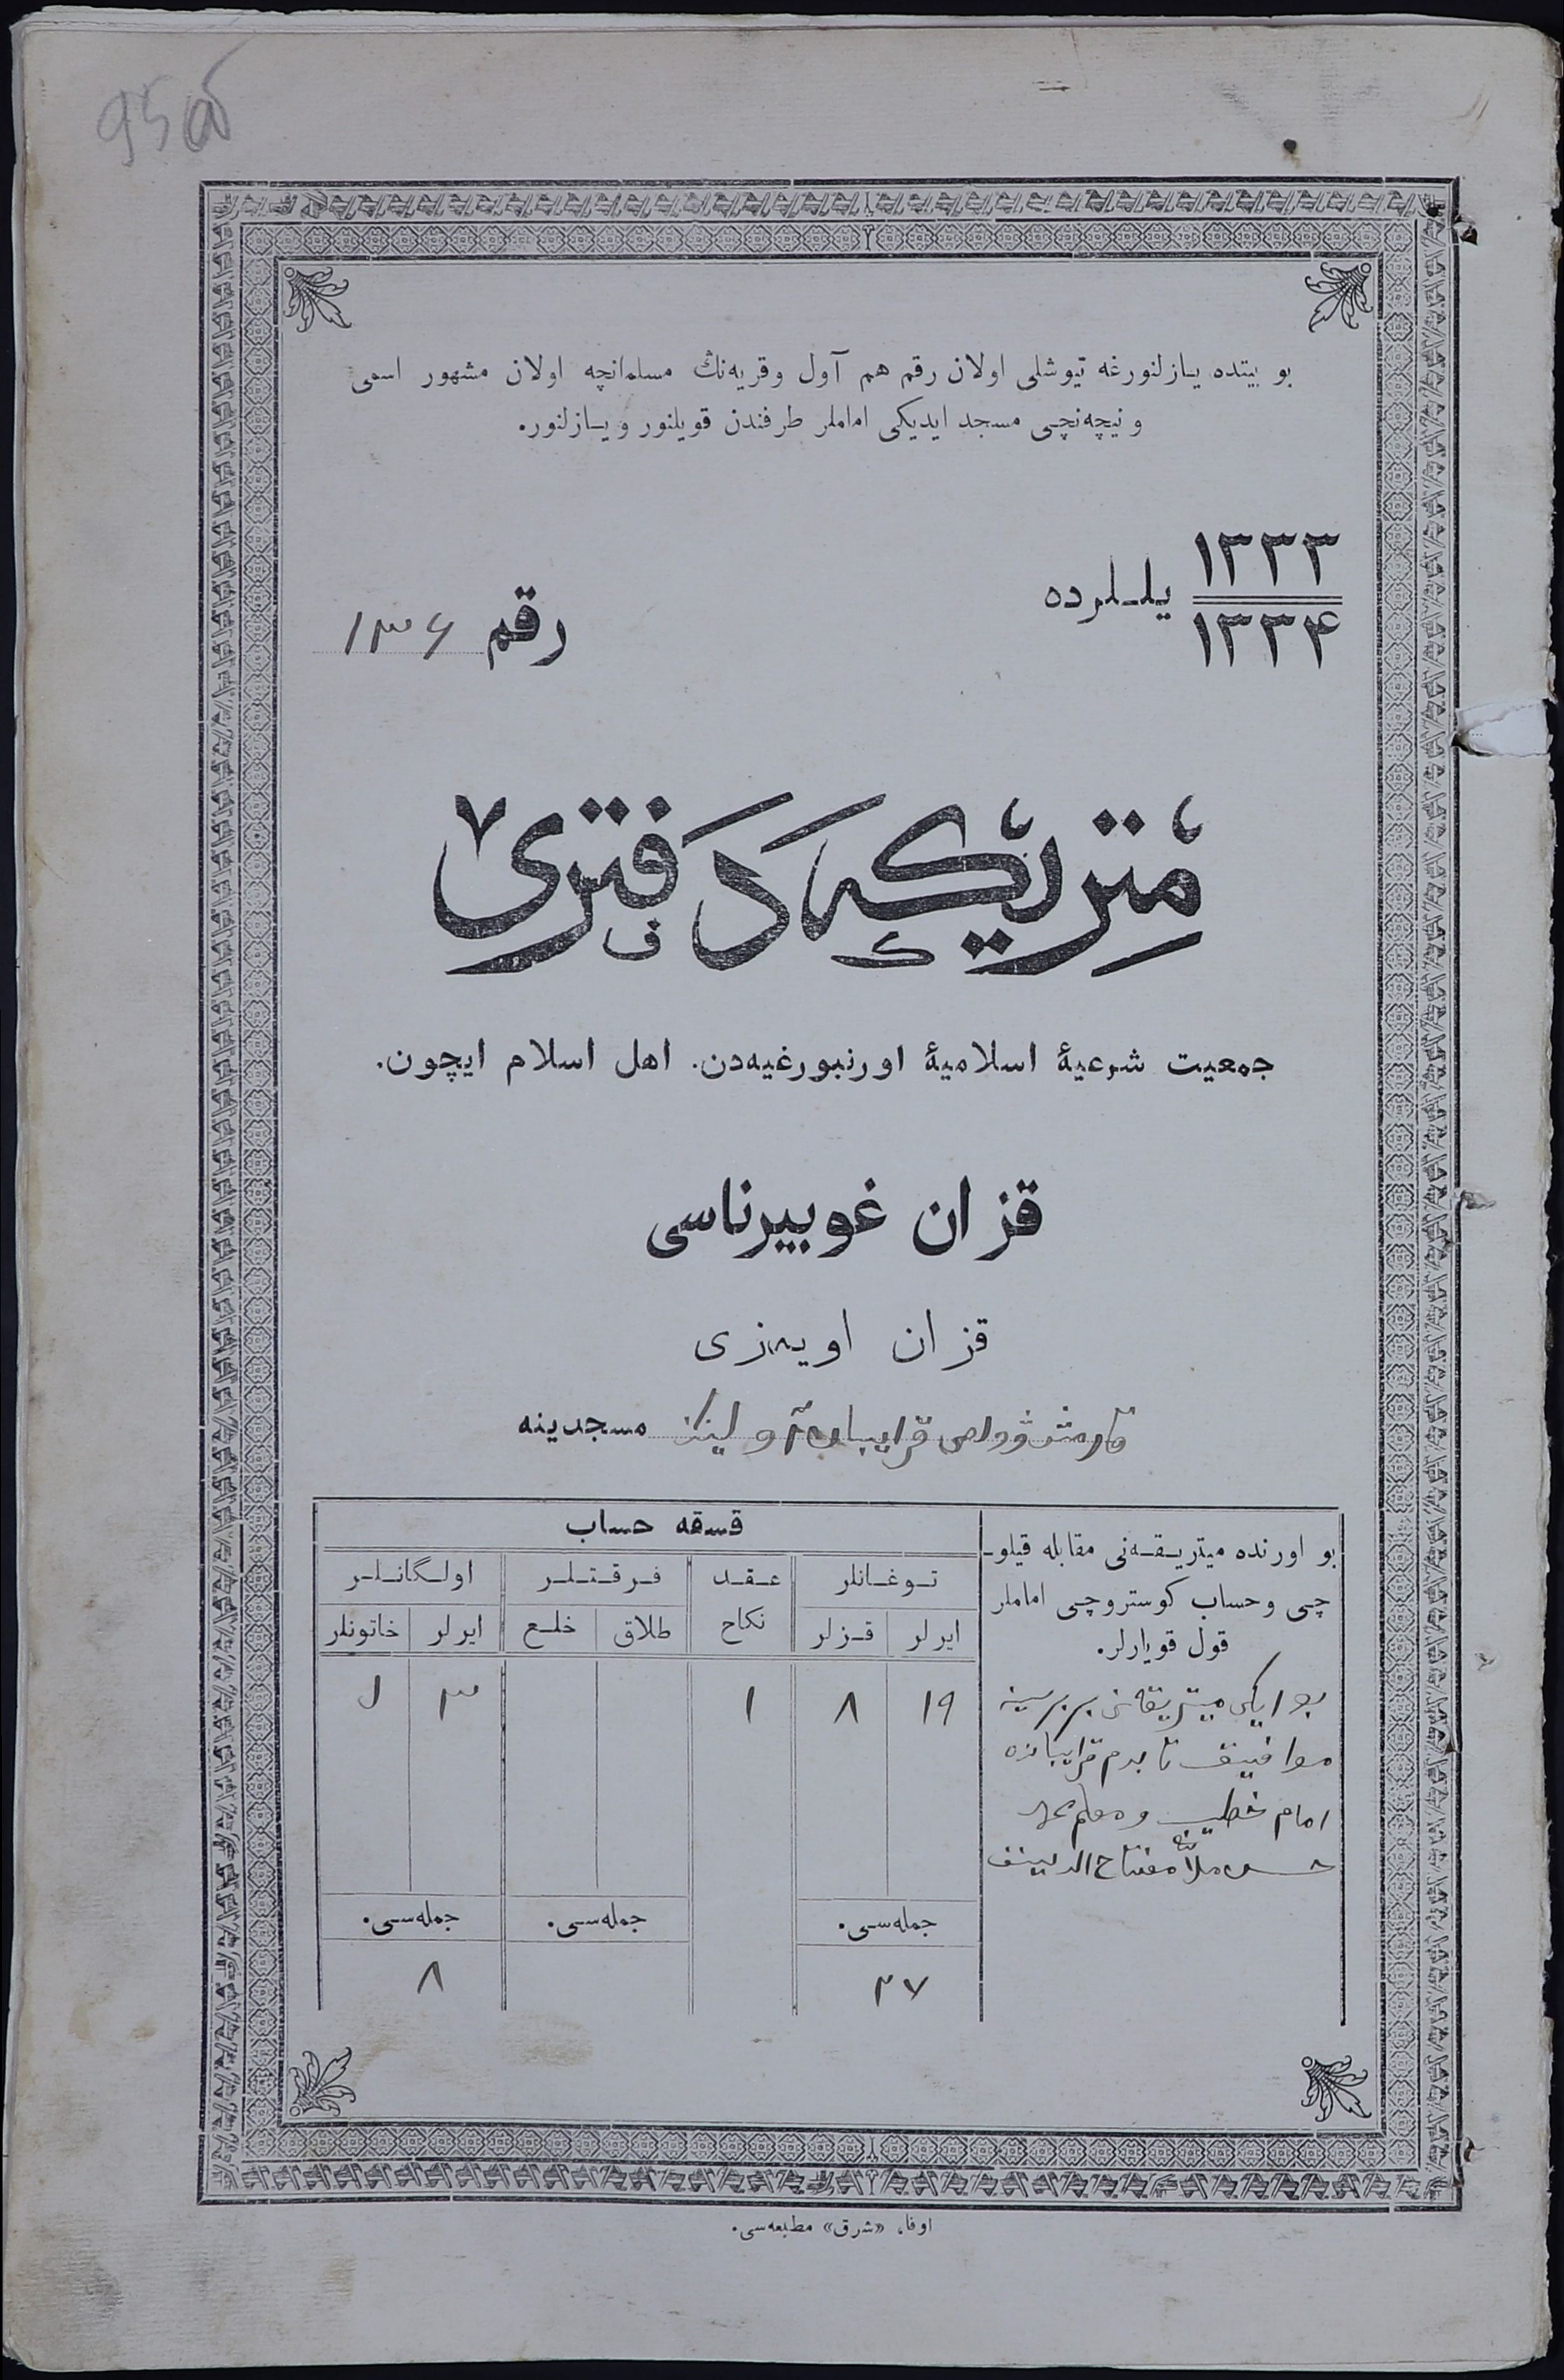 95 об
بو بیتده یازلنورغه تیوشلی اولان رقم هم آول و قریه‌نڭ مسلمانچه اولان مشهور اسمی
و نیچه‌نچی مسجد ایدیکی اماملر طرفندن قویلنور و یازلنور.
١٣٣٣
١٣٣۴ یللرده
رقم ١٣۶
متریكه دفتری
جمعیت شرعیهٔ اسلامیهٔ اورنبورغیه‌دن. اهل اسلام ایچون.
قزان غوبیرناسی
قزان اویه‌زی
مسجدینه
بو اورنده میتریقه‌نی مقابله قیلو-
چی و حساب کوستروچی اماملر
قول قویارلر.
بو ایکی میتریقه‌نی بر برسینه
موافیق تابدم
امام خطیب و معلم
ملا مفتاح الدینف
قسقه حساب
توغانلر عقد فرقتلر اولگانلر
ایرلر قزلر نکاح طلاق خلع ایرلر خاتونلر
١٩ ٨ ١ ٣
جمله‌سی. جمله‌سی. جمله‌سی.
٢٧ ٨
اوفا، «شرق» مطبعه‌سی.